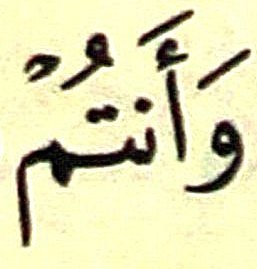 وَأَنتُمْ